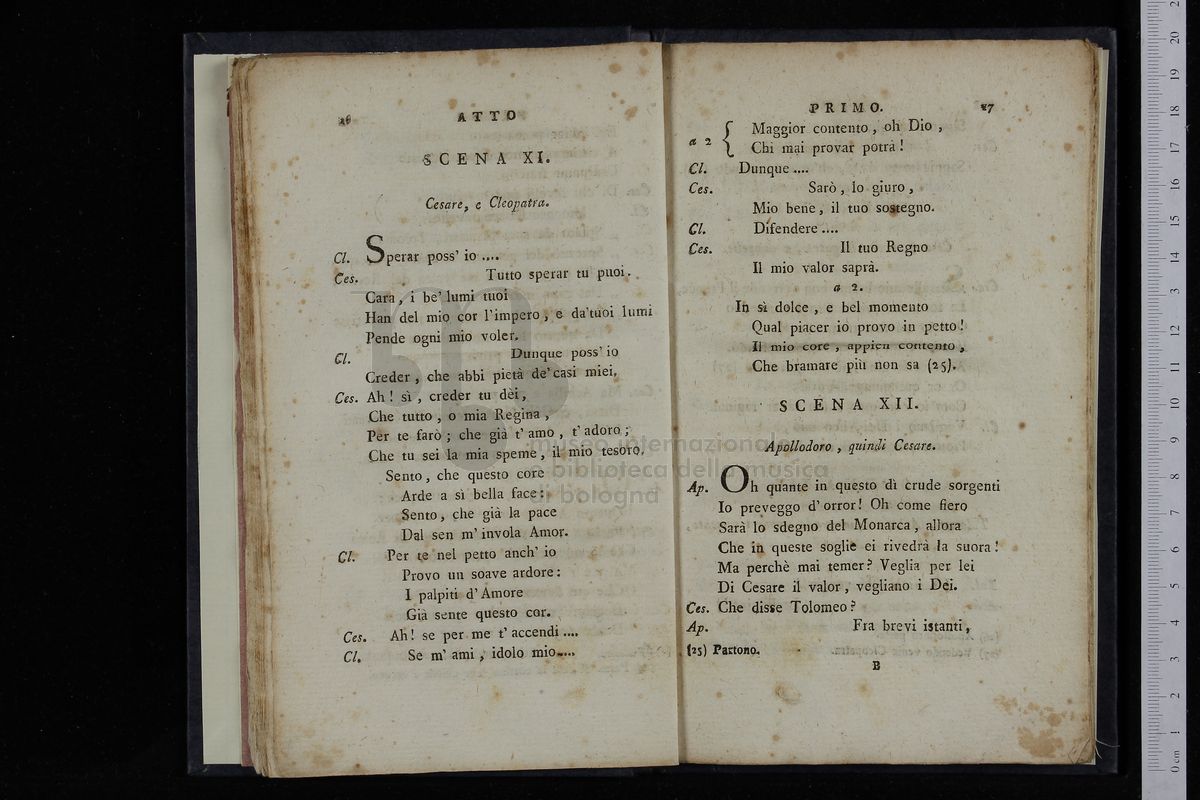 26 ATTO
SCENA XI.
Cesare, e Cleopatra.
Cl. Sperar poss' io ....
Ces. Tutto sperar tu puoi.
Cara, i be' lumi tuoi
Han del mio cor l'impero, e da'tuoi lumi
Pende ogni mio voler.
Cl. Dunque poss' io
Creder, che abbi pietà de' casi miei,
Ces. Ah! sì, creder tu dèi,
Che tutto, o mia Regina,
Per te farò; che già t' amo, t' adoro;
Che tu sei la mia speme, il mio tesoro.
Sento, che questo core
Arde a sì bella face:
Sento, che già la pace
Dal sen m' invola Amor.
Cl. Per te nel petto anch' io
Provo un soave ardore:
I palpiti d' Amore
Già sente questo cor.
Ces. Ah! se per me t' accendi ....
Cl. Se m' ami, idolo mio....
PRIMO. 27
a 2 { Maggior contento, oh Dio,
Chi mai provar potrà!
Cl. Dunque ....
Ces. Sarò, lo giuro,
Mio bene, il tuo sostegno.
Cl. Difendere ....
Ces. Il tuo Regno
Il mio valor saprà.
a 2.
In sì dolce, e bel momento
Qual piacer io provo in petto!
Il mio core, appien contento,
Che bramare più non sa (25).
SCENA XII.
Apollodoro, quindi Cesare.
Ap. Oh quante in questo dì crude sorgenti
Io preveggo d' orror! Oh come fiero
Sarà lo sdegno del Monarca, allora
Che in queste soglie ei rivedrà la suora!
Ma perchè mai temer? Veglia per lei
Di Cesare il valor, vegliano i Dei.
Ces. Che disse Tolomeo?
Ap. Fra brevi istanti,
(25) Partono.
B
museo internazionale
biblioteca della musica
di bologna
0 cm 1 2 3 4 5 6 7 8 9 10 11 12 13 14 15 16 17 18 19 20